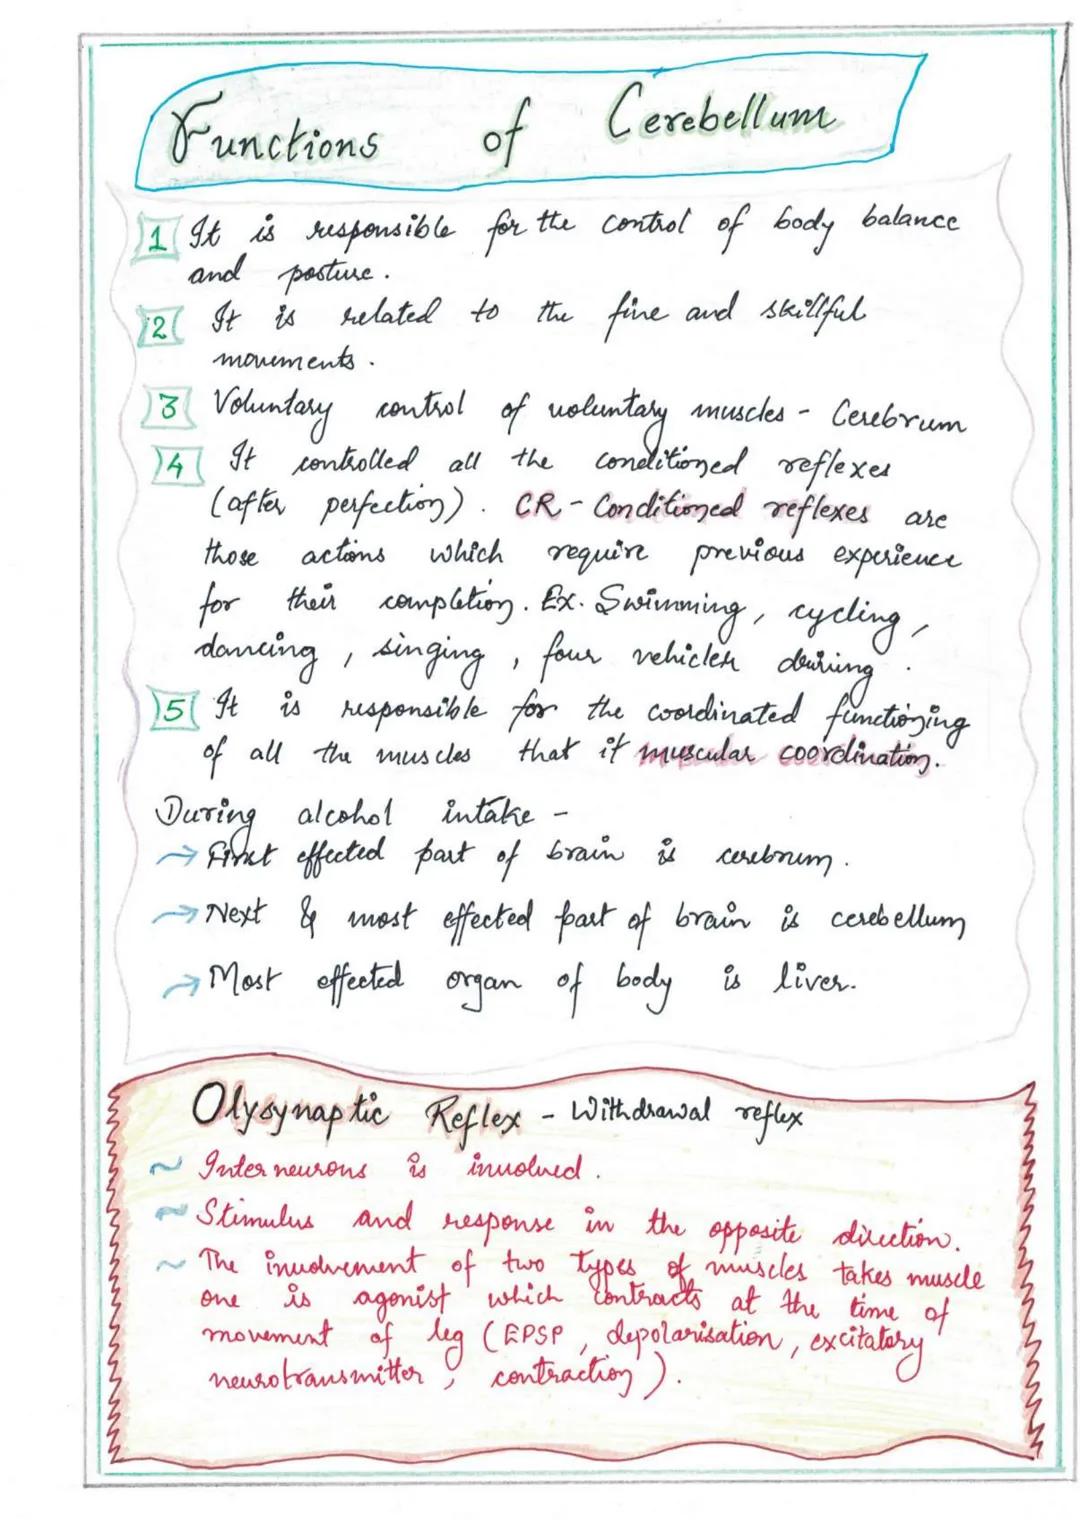 Functions of Cerebellum
1 It is responsible for the control of body balance
and posture.
2 It is related to the fine and skillful
movements.
3 Voluntary control of voluntary muscles - Cerebrum
4 It controlled all the conditioned reflexes
(after perfection). CR - Conditioned reflexes are
those actions which require previous experience
for their completion. Ex. Swimming, cycling,
dancing, singing, four vehicles driving.
5 It is responsible for the coordinated functioning
of all the muscles that if muscular coordination.
During alcohol intake -
→ First effected part of brain is cerebrum.
→ Next & most effected part of brain is cerebellum
→ Most effected organ of body is liver.
Olysynaptic Reflex - Withdrawal reflex
~ Inter neurons is involved.
~ Stimulus and response in the opposite direction.
~ The involvement of two types of muscles takes muscle
one is agonist which contracts at the time of
movement of leg (EPSP, depolarisation, excitatory
neurotransmitter, contraction).